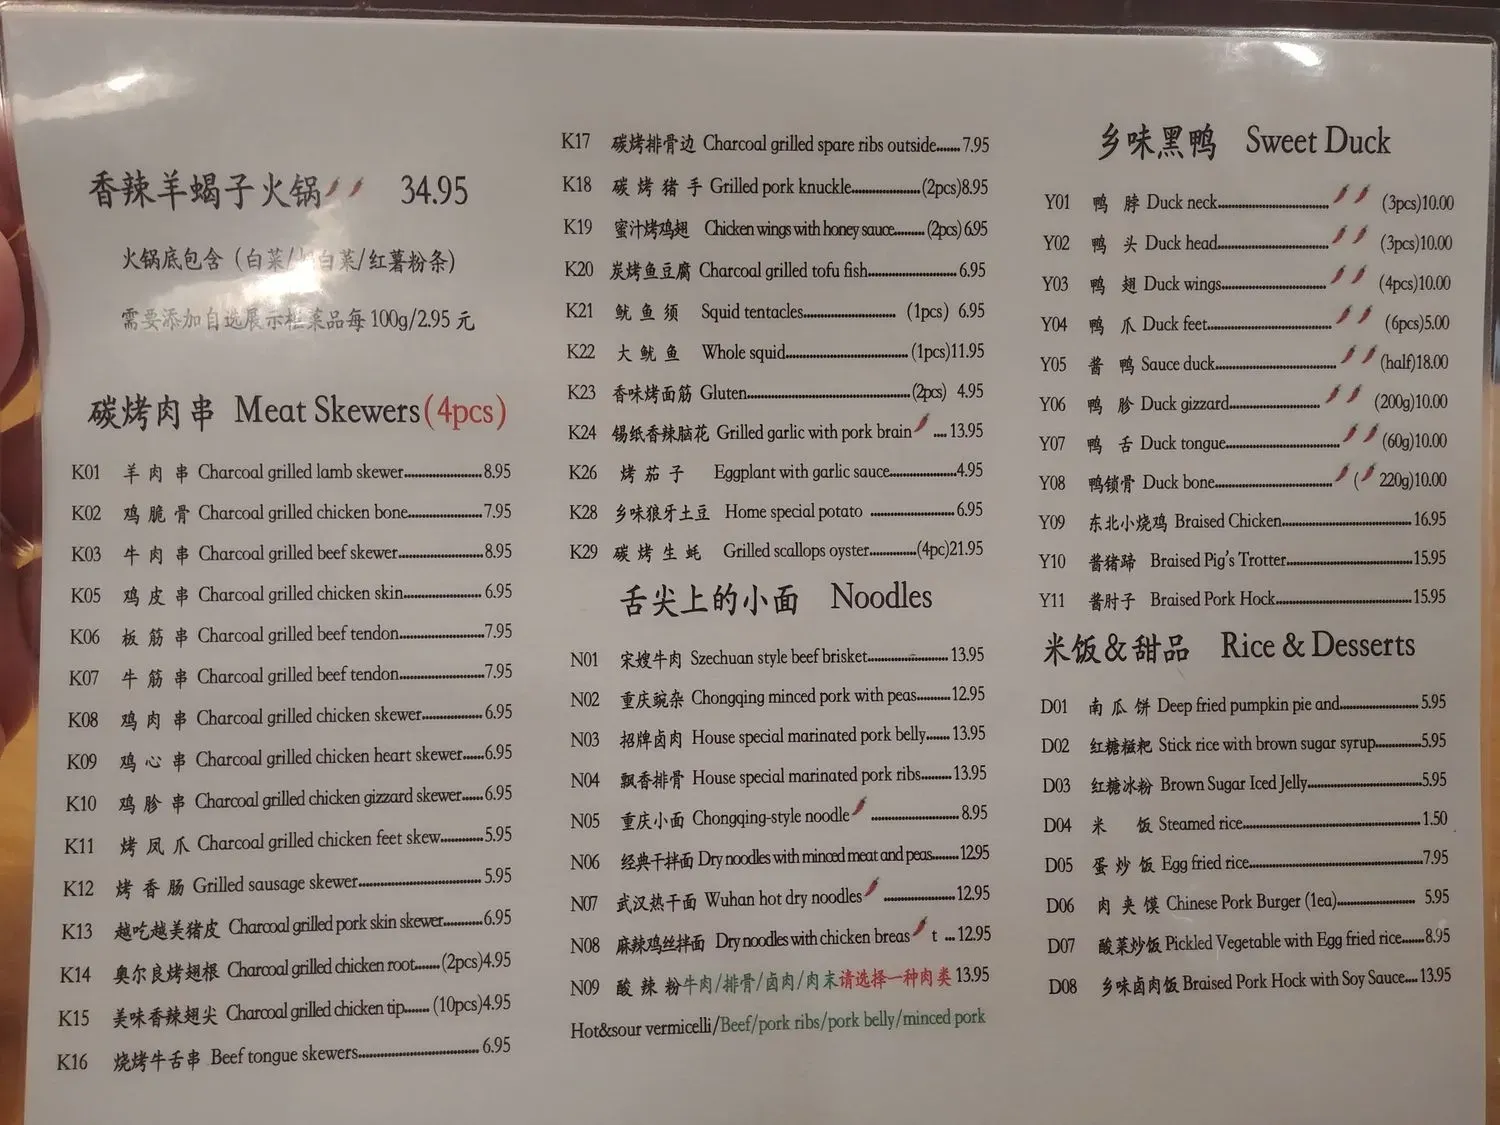 香辣羊蝎子火锅 34.95
火锅底包含（白菜/ 白菜/红薯粉条）
需要添加自选展示柜菜品每 100g/2.95 元
碳烤肉串 Meat Skewers(4pcs)
K01 羊肉串 Charcoal grilled lamb skewer 8.95
K02 鸡脆骨 Charcoal grilled chicken bone 7.95
K03 牛肉串 Charcoal grilled beef skewer 8.95
K05 鸡皮串 Charcoal grilled chicken skin 6.95
K06 板筋串 Charcoal grilled beef tendon 7.95
K07 牛筋串 Charcoal grilled beef tendon 7.95
K08 鸡肉串 Charcoal grilled chicken skewer 6.95
K09 鸡心串 Charcoal grilled chicken heart skewer 6.95
K10 鸡胗串 Charcoal grilled chicken gizzard skewer 6.95
K11 烤凤爪 Charcoal grilled chicken feet skew 5.95
K12 烤香肠 Grilled sausage skewer 5.95
K13 越吃越美猪皮 Charcoal grilled pork skin skewer 6.95
K14 奥尔良烤翅根 Charcoal grilled chicken root (2pcs)4.95
K15 美味香辣翅尖 Charcoal grilled chicken tip (10pcs)4.95
K16 烧烤牛舌串 Beef tongue skewers 6.95
K17 碳烤排骨边 Charcoal grilled spare ribs outside 7.95
K18 碳烤猪手 Grilled pork knuckle (2pcs)8.95
K19 蜜汁烤鸡翅 Chicken wings with honey sauce (2pcs) 6.95
K20 炭烤鱼豆腐 Charcoal grilled tofu fish 6.95
K21 鱿鱼须 Squid tentacles (1pcs) 6.95
K22 大鱿鱼 Whole squid (1pcs)11.95
K23 香味烤面筋 Gluten (2pcs) 4.95
K24 锡纸香辣脑花 Grilled garlic with pork brain 13.95
K26 烤茄子 Eggplant with garlic sauce 4.95
K28 乡味狼牙土豆 Home special potato 6.95
K29 碳烤生蚝 Grilled scallops oyster (4pc)21.95
舌尖上的小面 Noodles
N01 宋嫂牛肉 Szechuan style beef brisket 13.95
N02 重庆豌杂 Chongqing minced pork with peas 12.95
N03 招牌卤肉 House special marinated pork belly 13.95
N04 飘香排骨 House special marinated pork ribs 13.95
N05 重庆小面 Chongqing-style noodle 8.95
N06 经典干拌面 Dry noodles with minced meat and peas 12.95
N07 武汉热干面 Wuhan hot dry noodles 12.95
N08 麻辣鸡丝拌面 Dry noodles with chicken breas t 12.95
N09 酸辣粉牛肉/排骨/卤肉/肉末请选择一种肉类 13.95
Hot&sour vermicelli/Beef/pork ribs/pork belly/minced pork
乡味黑鸭 Sweet Duck
Y01 鸭脖 Duck neck (3pcs)10.00
Y02 鸭头 Duck head (3pcs)10.00
Y03 鸭翅 Duck wings (4pcs)10.00
Y04 鸭爪 Duck feet (6pcs)5.00
Y05 酱鸭 Sauce duck (half)18.00
Y06 鸭胗 Duck gizzard (200g)10.00
Y07 鸭舌 Duck tongue (60g)10.00
Y08 鸭锁骨 Duck bone ( 220g)10.00
Y09 东北小烧鸡 Braised Chicken 16.95
Y10 酱猪蹄 Braised Pig's Trotter 15.95
Y11 酱肘子 Braised Pork Hock 15.95
米饭&甜品 Rice & Desserts
D01 南瓜饼 Deep fried pumpkin pie and 5.95
D02 红糖糍粑 Stick rice with brown sugar syrup 5.95
D03 红糖冰粉 Brown Sugar Iced Jelly 5.95
D04 米饭 Steamed rice 1.50
D05 蛋炒饭 Egg fried rice 7.95
D06 肉夹馍 Chinese Pork Burger (1ea) 5.95
D07 酸菜炒饭 Pickled Vegetable with Egg fried rice 8.95
D08 乡味卤肉饭 Braised Pork Hock with Soy Sauce 13.95